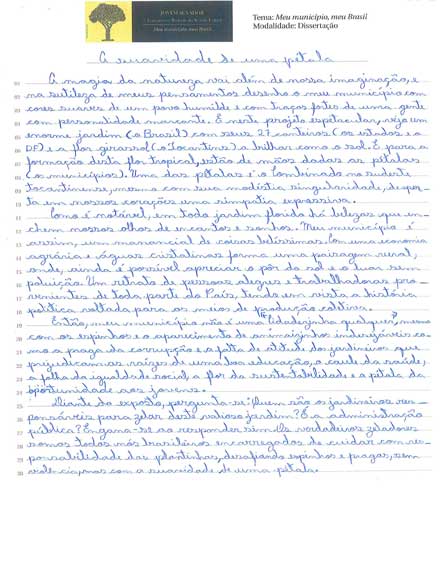 JOVEM SENADOR
Tema: Meu município, meu Brasil
Modalidade: Dissertação
Meu município, meu Brasil
A suavidade de uma pétala
A magia da natureza vai além de nossa imaginação, e
na sutileza de meus pensamentos desenho o meu município com
cores suaves de um povo humilde e com traços fortes de uma gente
com personalidade marcante. E neste projeto espetacular, vejo um
enorme jardim (o Brasil) com seus 27 canteiros (os estados e o
DF) e a flor girassol (o Tocantins) a brilhar como o sol. E para a
formação desta flor tropical, estão de mãos dadas as pétalas
(os municípios). Uma das pétalas é o Combinado no sudeste
tocantinense, mesmo com sua modéstia singularidade, desper-
ta em nossos corações uma simpatia expressiva.
Como é notável, em todo jardim florido há belezas que en-
chem nossos olhos de encantos e sonhos. Meu município é
assim, um manancial de coisas belíssimas. Com uma economia
agrária e águas cristalinas forma uma paisagem rural,
onde, ainda é possível apreciar o pôr do sol e o luar sem
poluição. Um retrato de pessoas alegres e trabalhadoras pro-
venientes de toda parte do País, tendo em vista a história
política voltada para os meios de produção coletiva.
Então, meu município não é uma "cidadezinha qualquer", mesmo
com os espinhos e o aparecimento de animaizinhos indesejáveis co-
mo a praga da corrupção e a falta de atitude do jardineiro que
prejudicam as raízes de uma boa educação, o caule da saúde,
a folha da igualdade social, a flor da sustentabilidade e a pétala da
oportunidade aos jovens.
Diante do exposto, pergunta-se: Quem são os jardineiros res-
ponsáveis para zelar deste valioso jardim? É a administração
pública? Engana-se ao responder sim. Os verdadeiros zeladores
somos todos nós brasileiros encarregados de cuidar com res-
ponsabilidade das plantinhas, desafiando espinhos e pragas, sem
violência, mas com a suavidade de uma pétala.